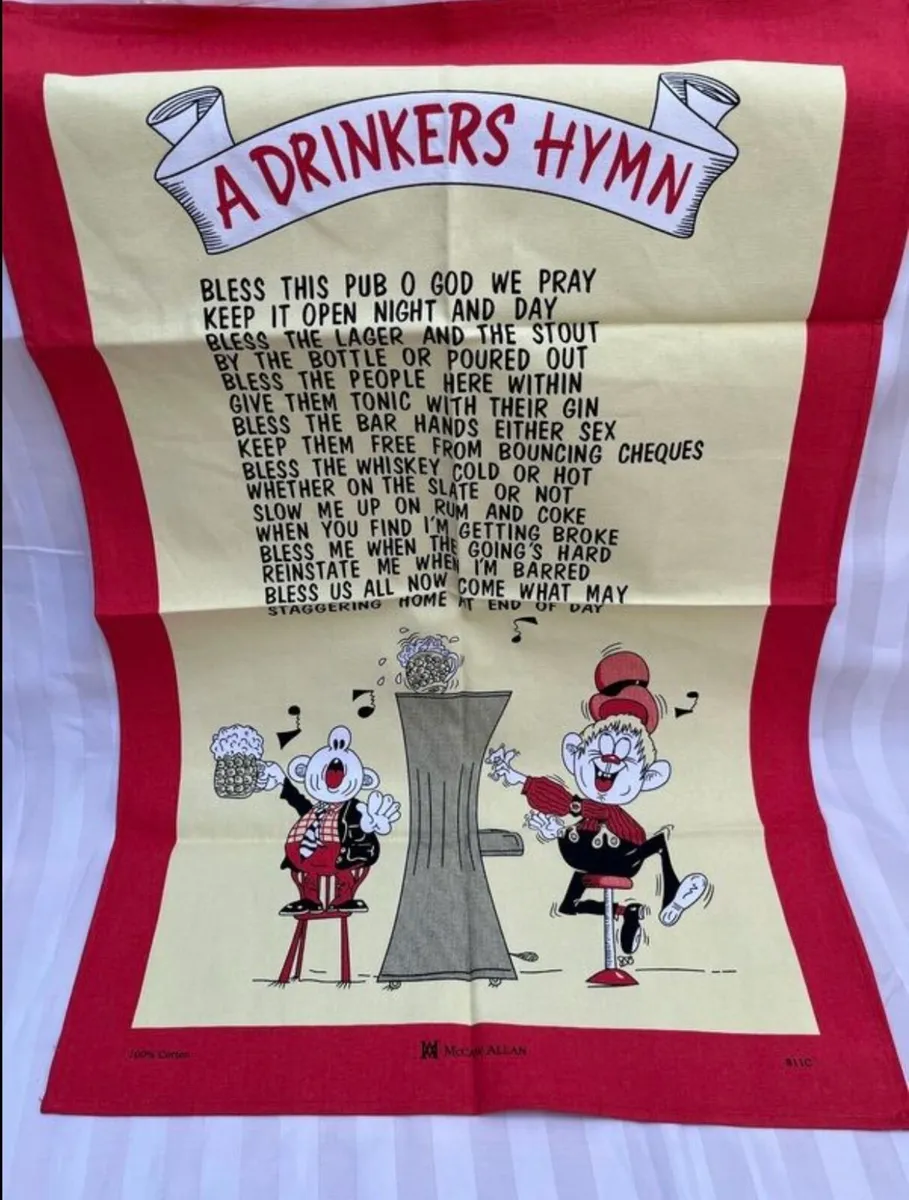 A DRINKERS HYMN
BLESS THIS PUB O GOD WE PRAY
KEEP IT OPEN NIGHT AND DAY
BLESS THE LAGER AND THE STOUT
BY THE BOTTLE OR POURED OUT
BLESS THE PEOPLE HERE WITHIN
GIVE THEM TONIC WITH THEIR GIN
BLESS THE BAR HANDS EITHER SEX
KEEP THEM FREE FROM BOUNCING CHEQUES
BLESS THE WHISKEY COLD OR HOT
WHETHER ON THE SLATE OR NOT
SLOW ME UP ON RUM AND COKE
WHEN YOU FIND I'M GETTING BROKE
BLESS ME WHEN THE GOING'S HARD
REINSTATE ME WHEN I'M BARRED
BLESS US ALL NOW COME WHAT MAY
STAGGERING HOME AT END OF DAY
100% Cotton
McCaw ALLAN
811C